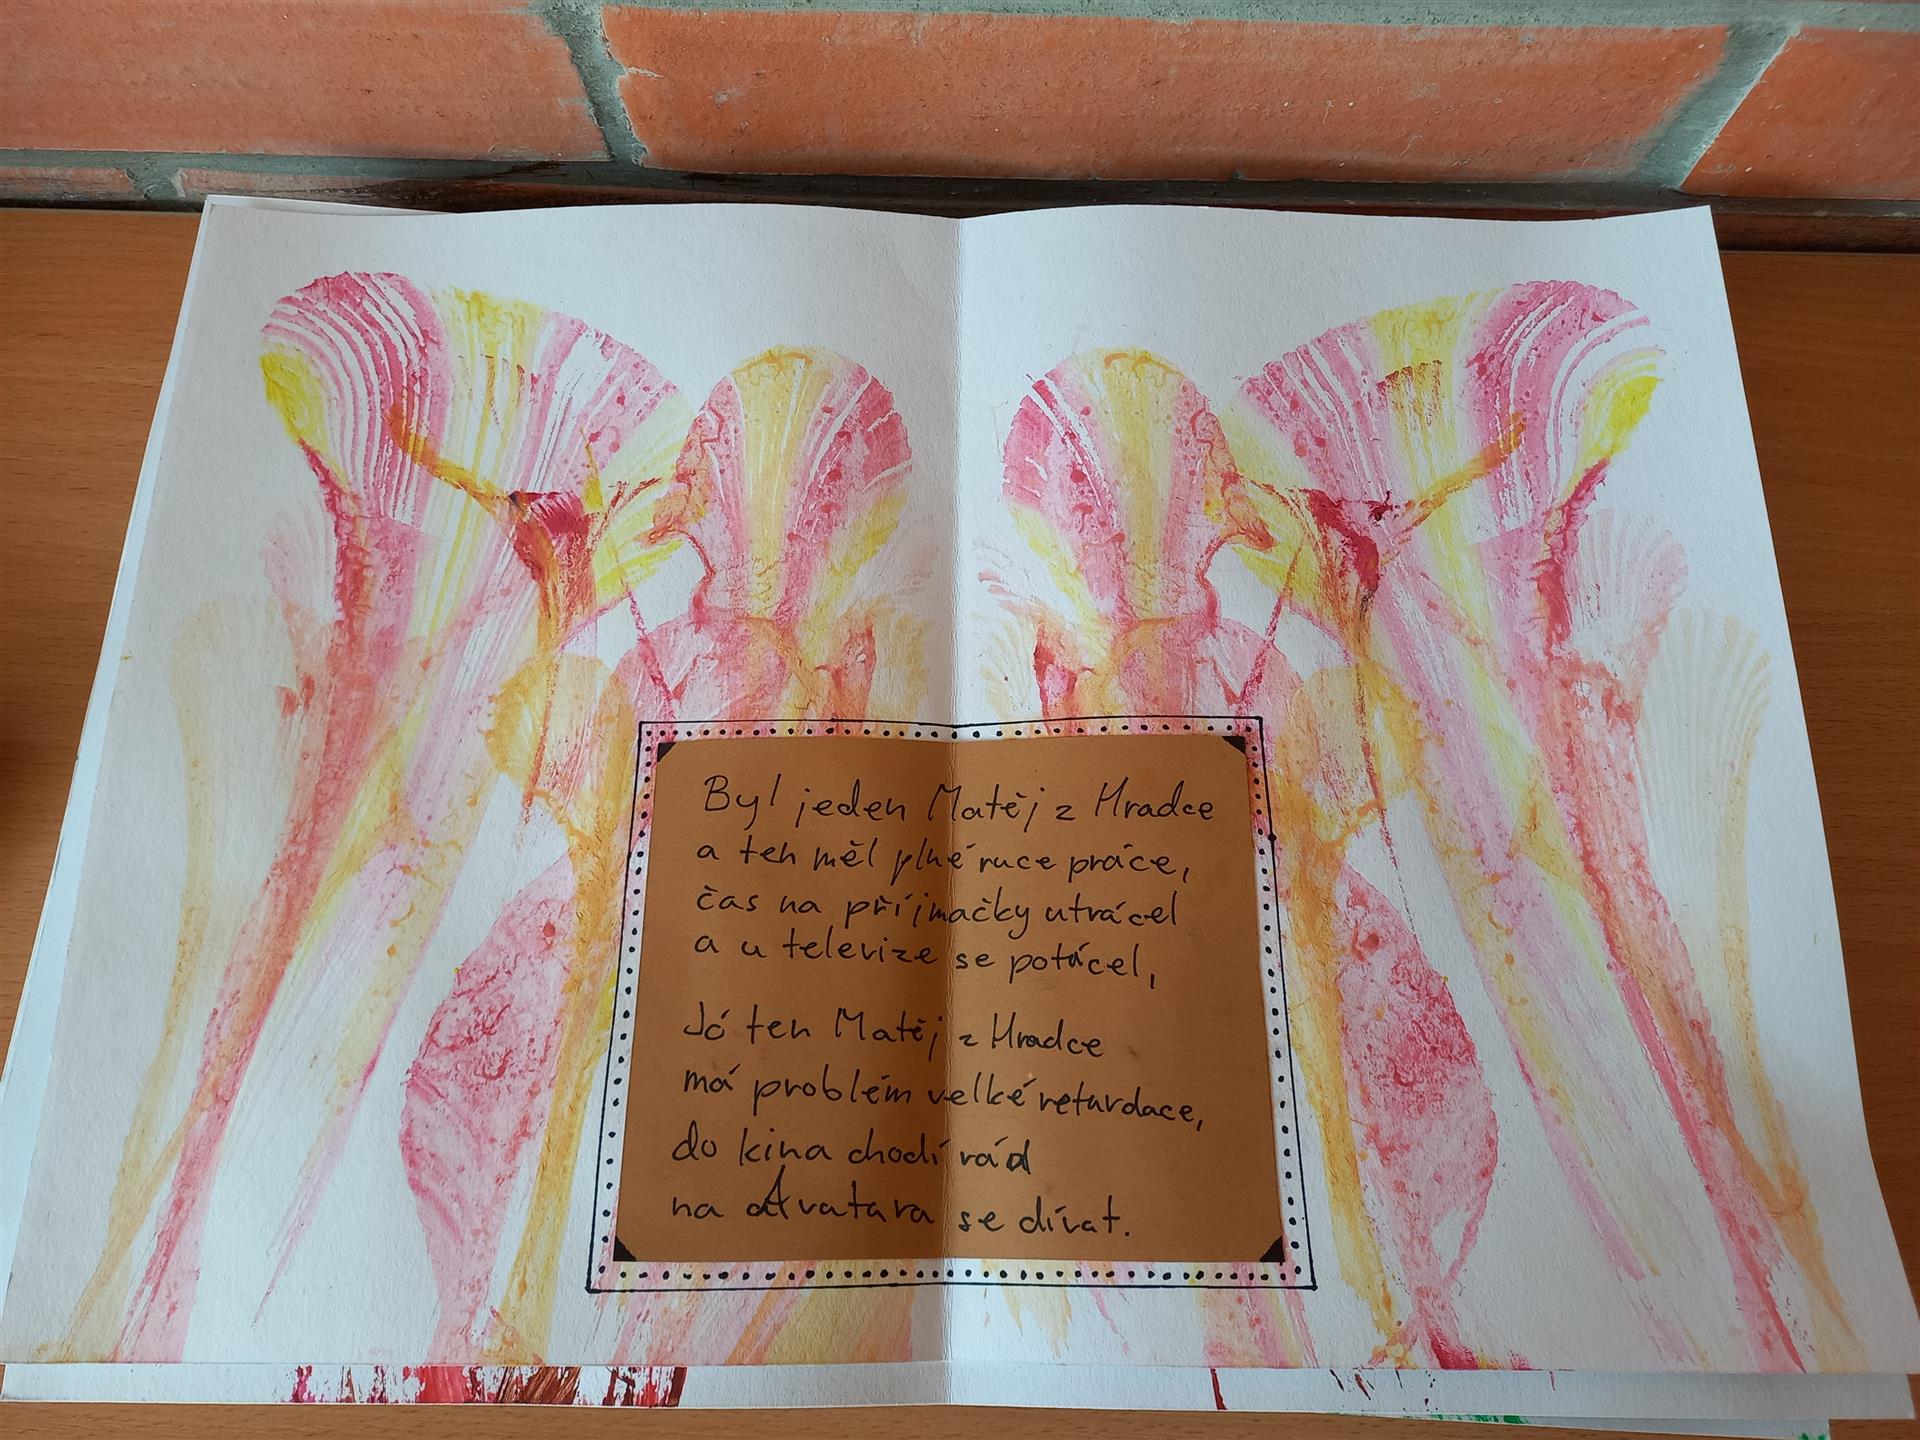 Byl jeden Matěj z Hradce
a ten měl plné ruce práce,
čas na příjmačky utrácel
a u televize se potácel,
Jó ten Matěj z Hradce
má problém velké retardace,
do kina chodí rád
na Avatara se dívat.